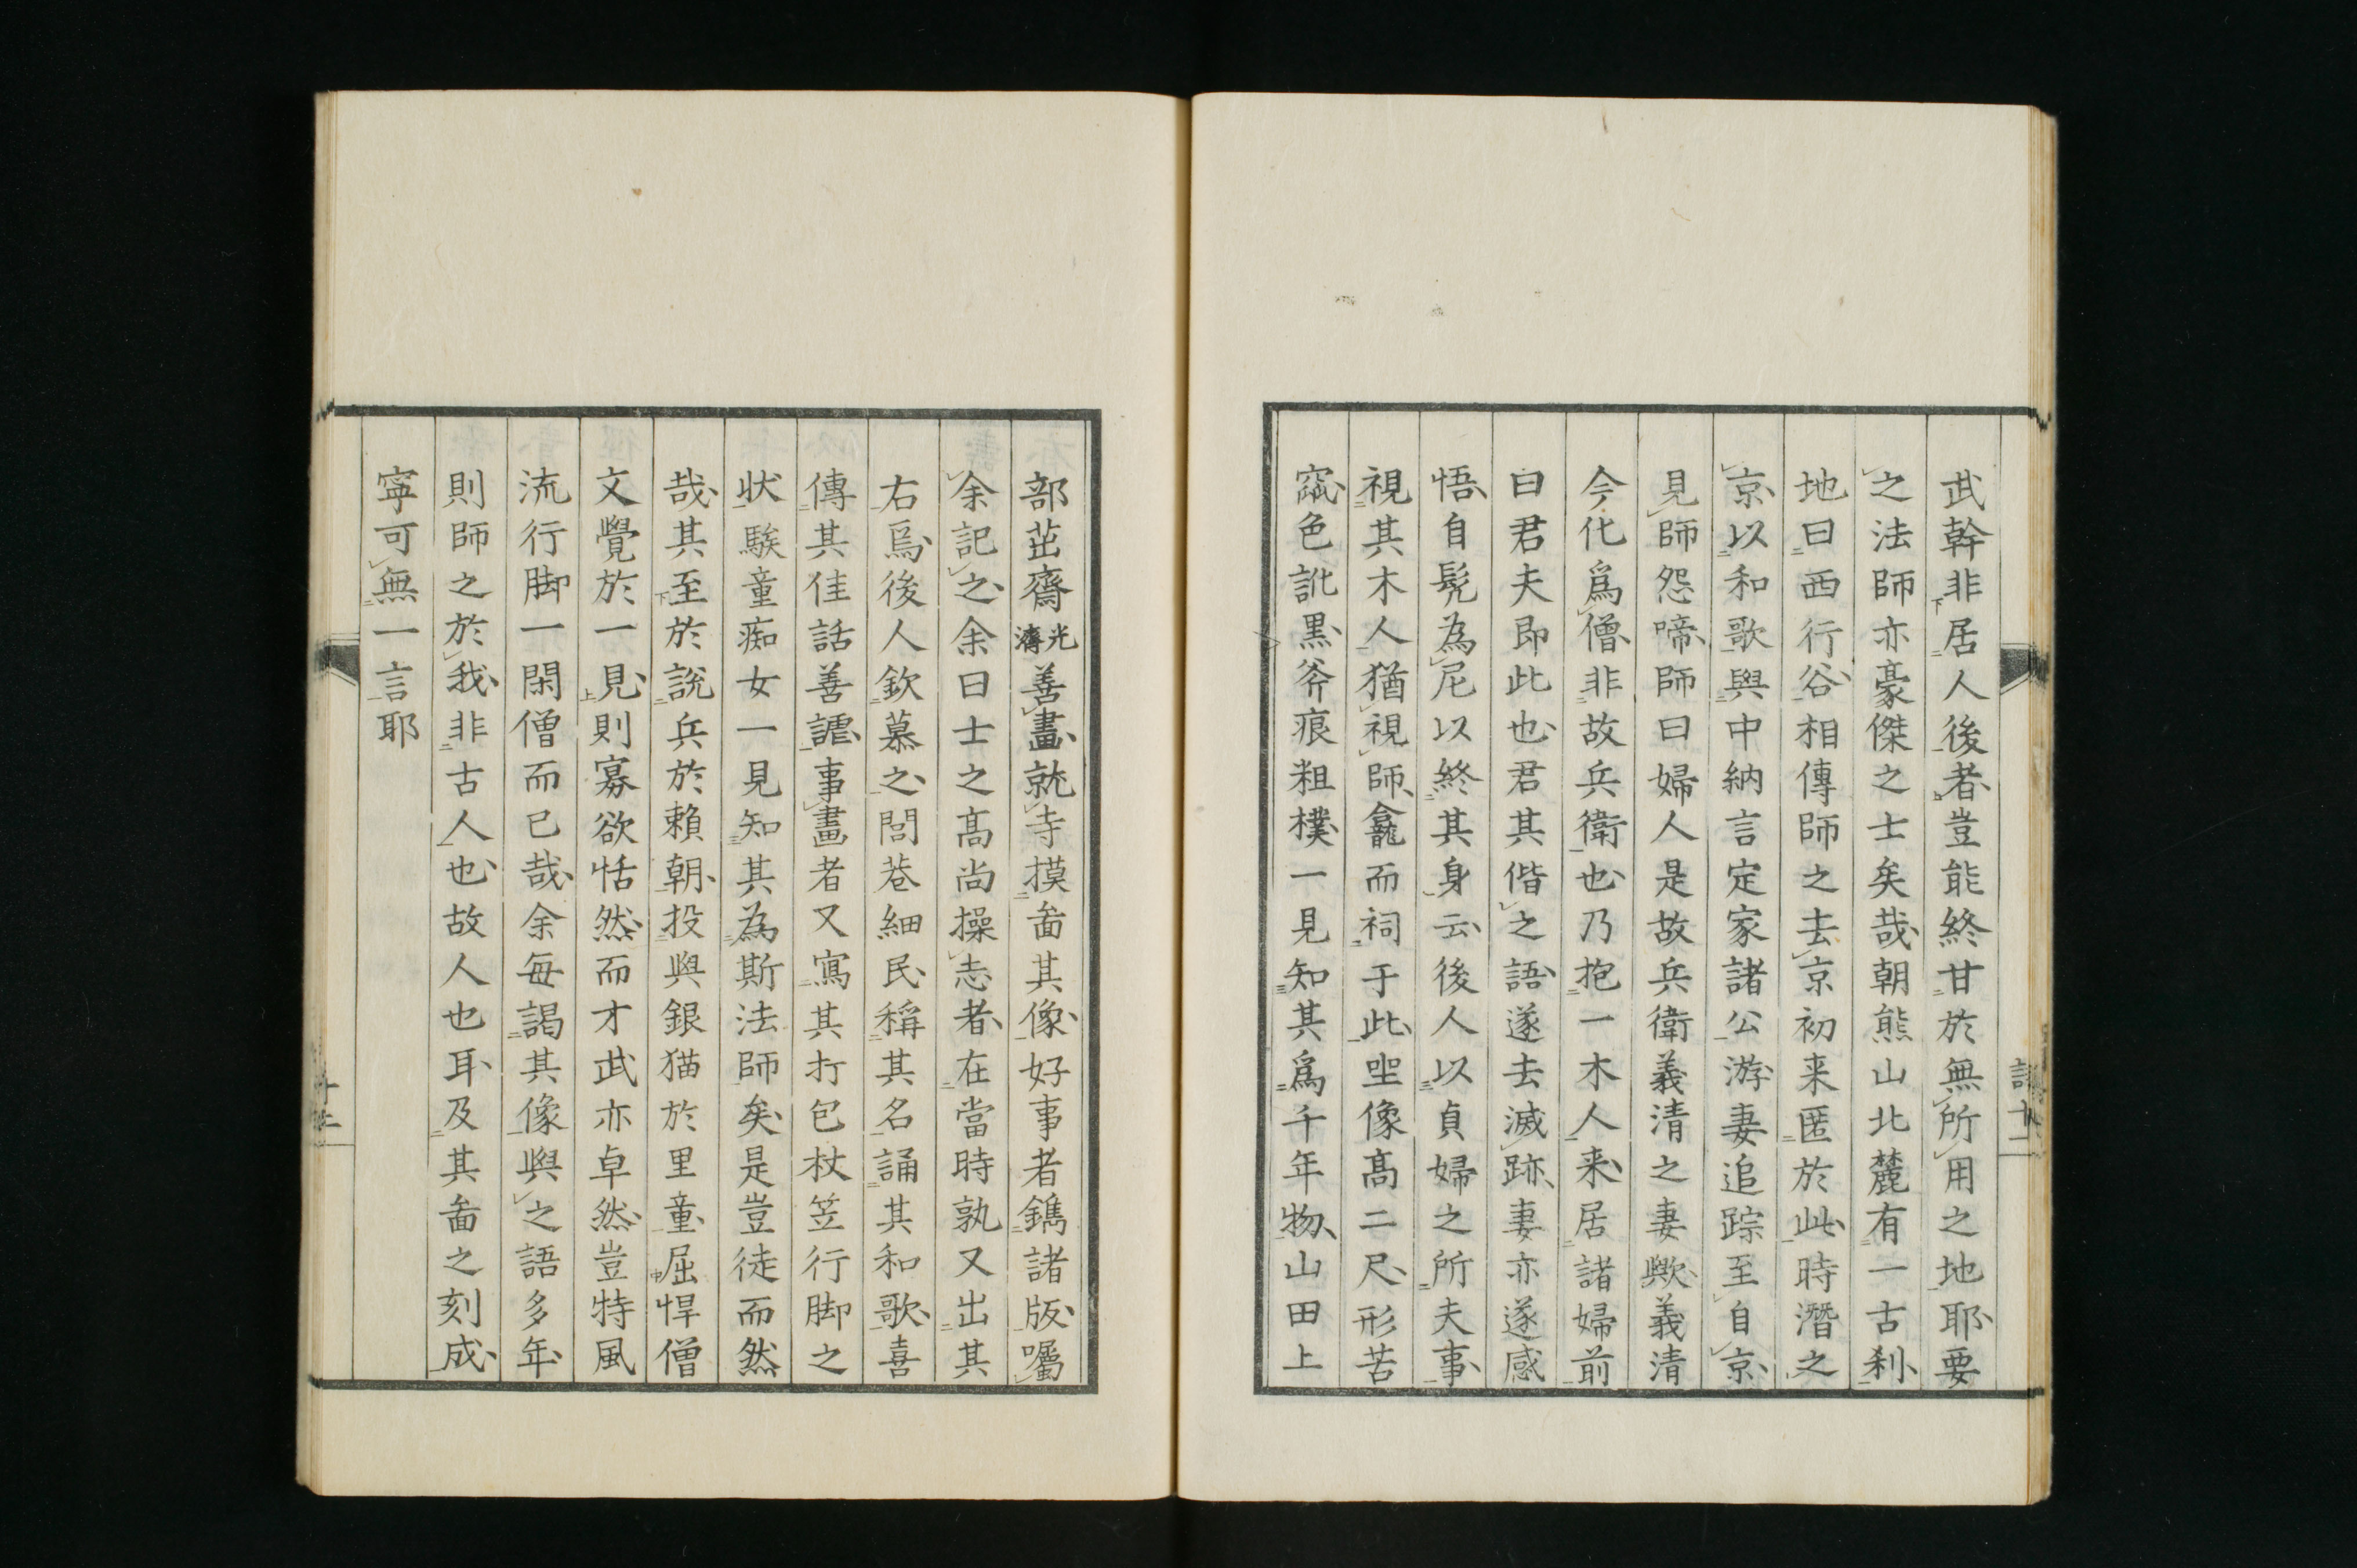 武幹非居人後者豈能終甘於無所用之地耶要
之法師亦豪傑之士矣哉朝熊山北麓有一古刹
地曰西行谷相傳師之去京初来匿於此時潛之
京以和歌與中納言定家諸公游妻追踪至自京
見師怨啼師曰婦人是故兵衛義清之妻歟義清
今化爲僧非故兵衛也乃抱一木人来居諸婦前
曰君夫即此也君其偕之語遂去滅跡妻亦遂感
悟自髡為尼以終其身云後人以貞婦之所夫事
視其木人猶視師龕而祠于此坐像高二尺形苦
窳色訛黒斧痕粗樸一見知其爲千年物山田上
部茁齋光濤善畫就寺摸啚其像好事者鐫諸版囑
余記之余曰士之高尚操志者在當時孰又出其
右焉後人欽慕之閭巷細民稱其名誦其和歌喜
傳其佳話善謔事畫者又寫其打包杖笠行脚之
状騃童痴女一見知其為斯法師矣是豈徒而然
哉其至於説兵於賴朝投與銀猫於里童屈悍僧
文覺於一見則寡欲恬然而才武亦卓然豈特風
流行脚一閑僧而已哉余每謁其像與之語多年
則師之於我非古人也故人也耳及其啚之刻成
寧可無一言耶